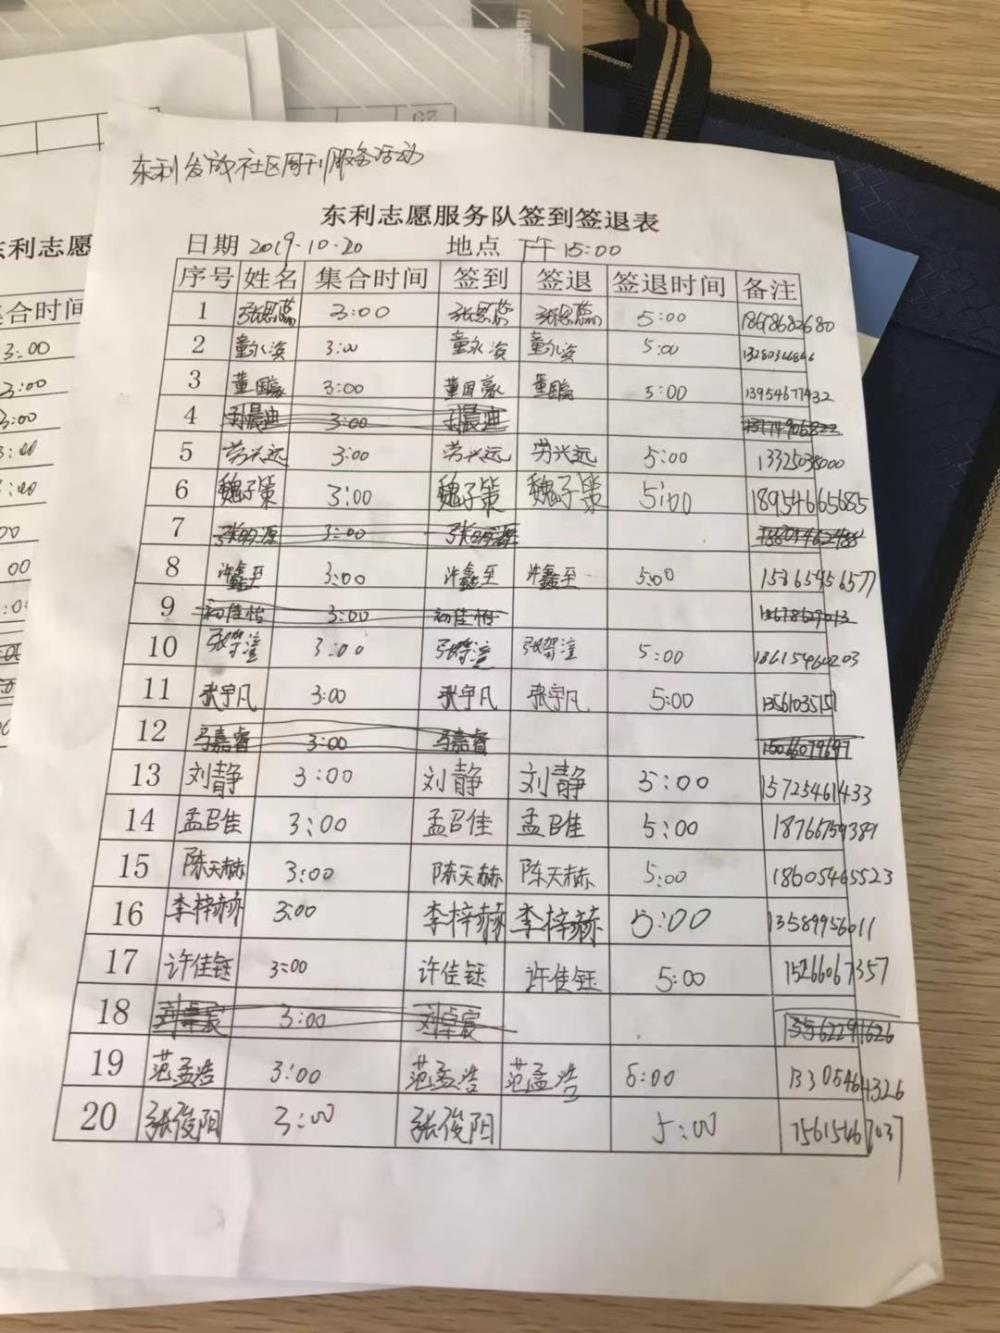 东利发放社区周刊服务活动
东利志愿服务队签到签退表
日期 2019.10.20 地点 下午15:00
序号 姓名 集合时间 签到 签退 签退时间 备注
1 3:00 5:00 18678682680
2 3:00 5:00
3 董国豪 3:00 董国豪 董国豪 5:00 13954677432
4 刘晨迪 3:00 刘晨迪
5 劳兴远 3:00 劳兴远 劳兴远 5:00
6 魏子策 3:00 魏子策 魏子策 5:00 18954665685
7 张明源 3:00 张明源
8 许鑫至 3:00 许鑫至 许鑫至 5:00 15865456577
9 初佳怡 3:00 初佳怡
10 3:00 5:00 18615460203
11 张宇凡 3:00 张宇凡 张宇凡 5:00
12 马嘉睿 3:00 马嘉睿
13 刘静 3:00 刘静 刘静 5:00 15725461433
14 孟召佳 3:00 孟召佳 孟召佳 5:00 18766759389
15 陈天赫 3:00 陈天赫 陈天赫 5:00 18605465523
16 李梓赫 3:00 李梓赫 李梓赫 5:00 13589956011
17 许佳钰 3:00 许佳钰 许佳钰 5:00 15266067357
18 刘卓宸 3:00 刘卓宸
19 范孟浩 3:00 范孟浩 范孟浩 5:00 13305464326
20 张俊阳 3:00 张俊阳 5:00